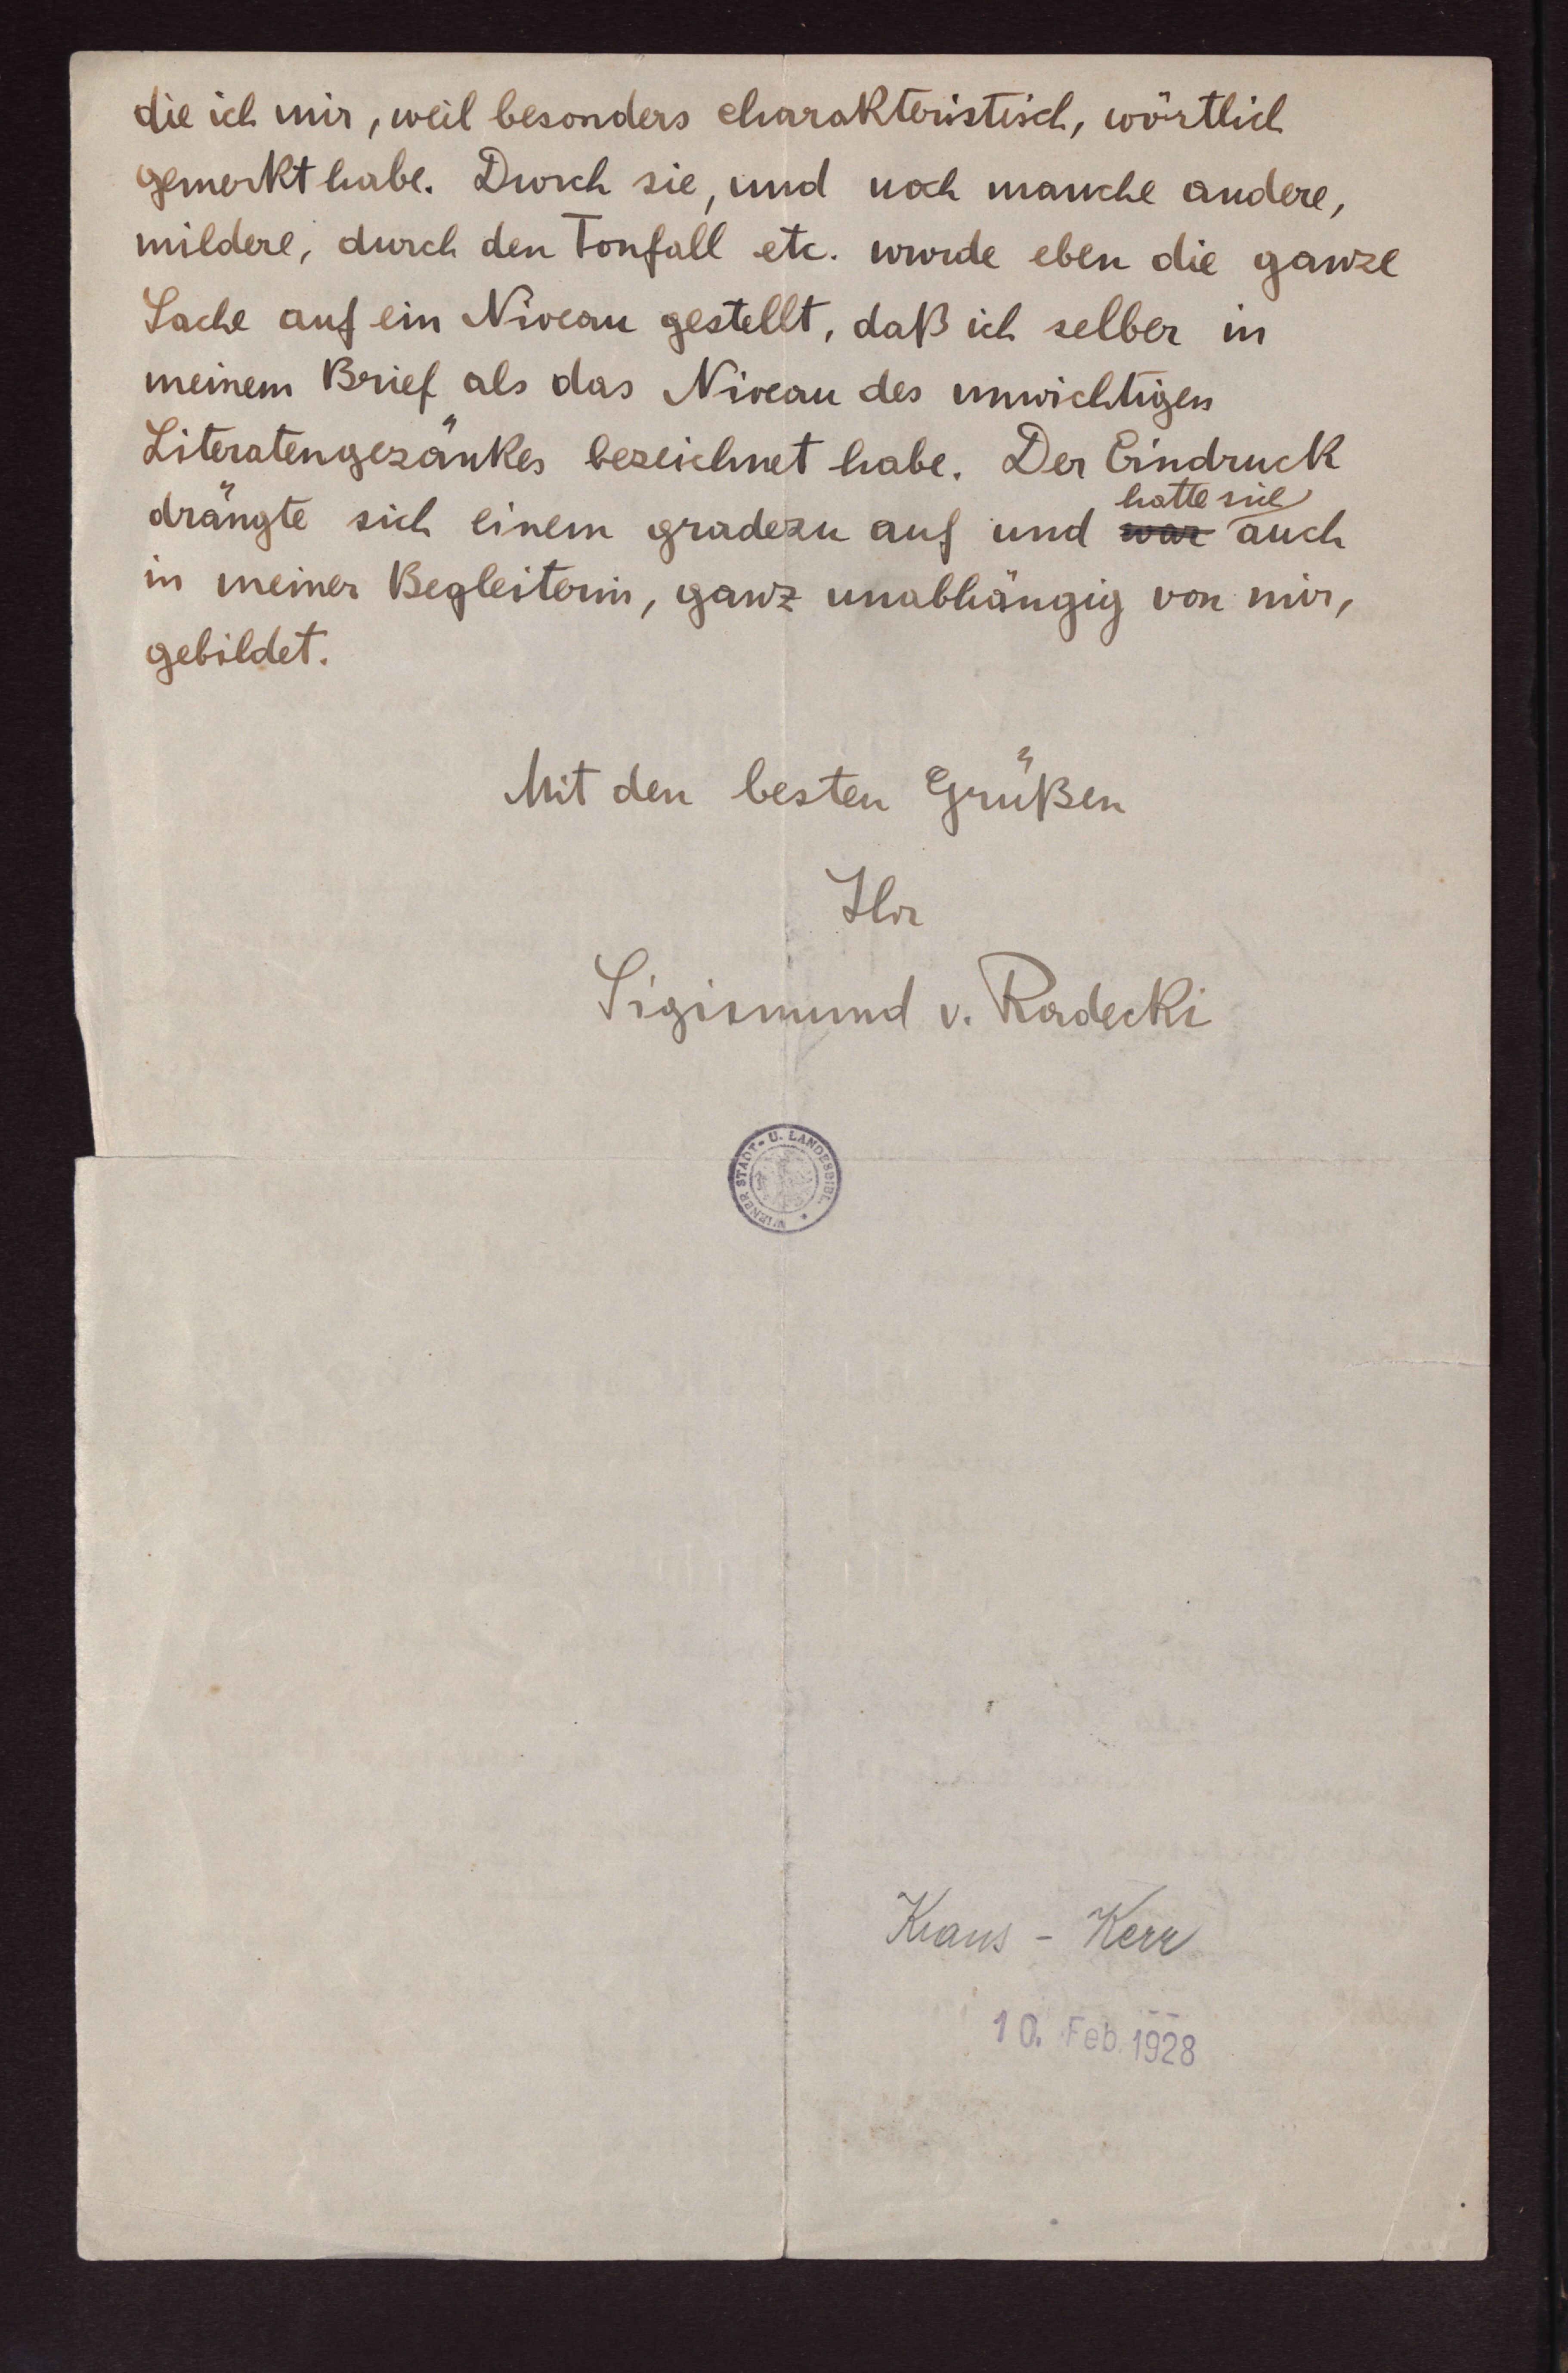 die ich mir, weil besonders charakteristisch, wörtlich
gemerkt habe. Durch sie, und noch manche andere,
mildere, durch den Tonfall etc. wurde eben die ganze
Sache auf ein Niveau gestellt, daß ich selber in
meinem Brief als das Niveau des unwichtigen
Literatengezänkes bezeichnet habe. Der Eindruck
hatte sich
drängte sich einem gradezu auf und war auch
in meiner Begleiterin, ganz unabhängig von mir,
gebildet.
Mit den besten Grüßen
Ihr
Sigismund v. Radecki
WIENER STADT- U. LANDESBIBL.
Kraus - Kerr
10. Feb. 1928